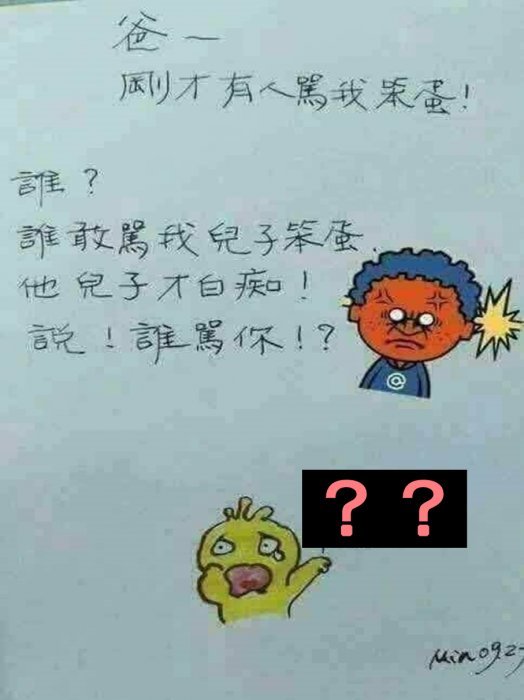 爸一
剛才有人罵我笨蛋!
誰?
誰敢罵我兒子笨蛋.
他兒子才白痴!
說!誰罵你!?
@
??
Min 0927